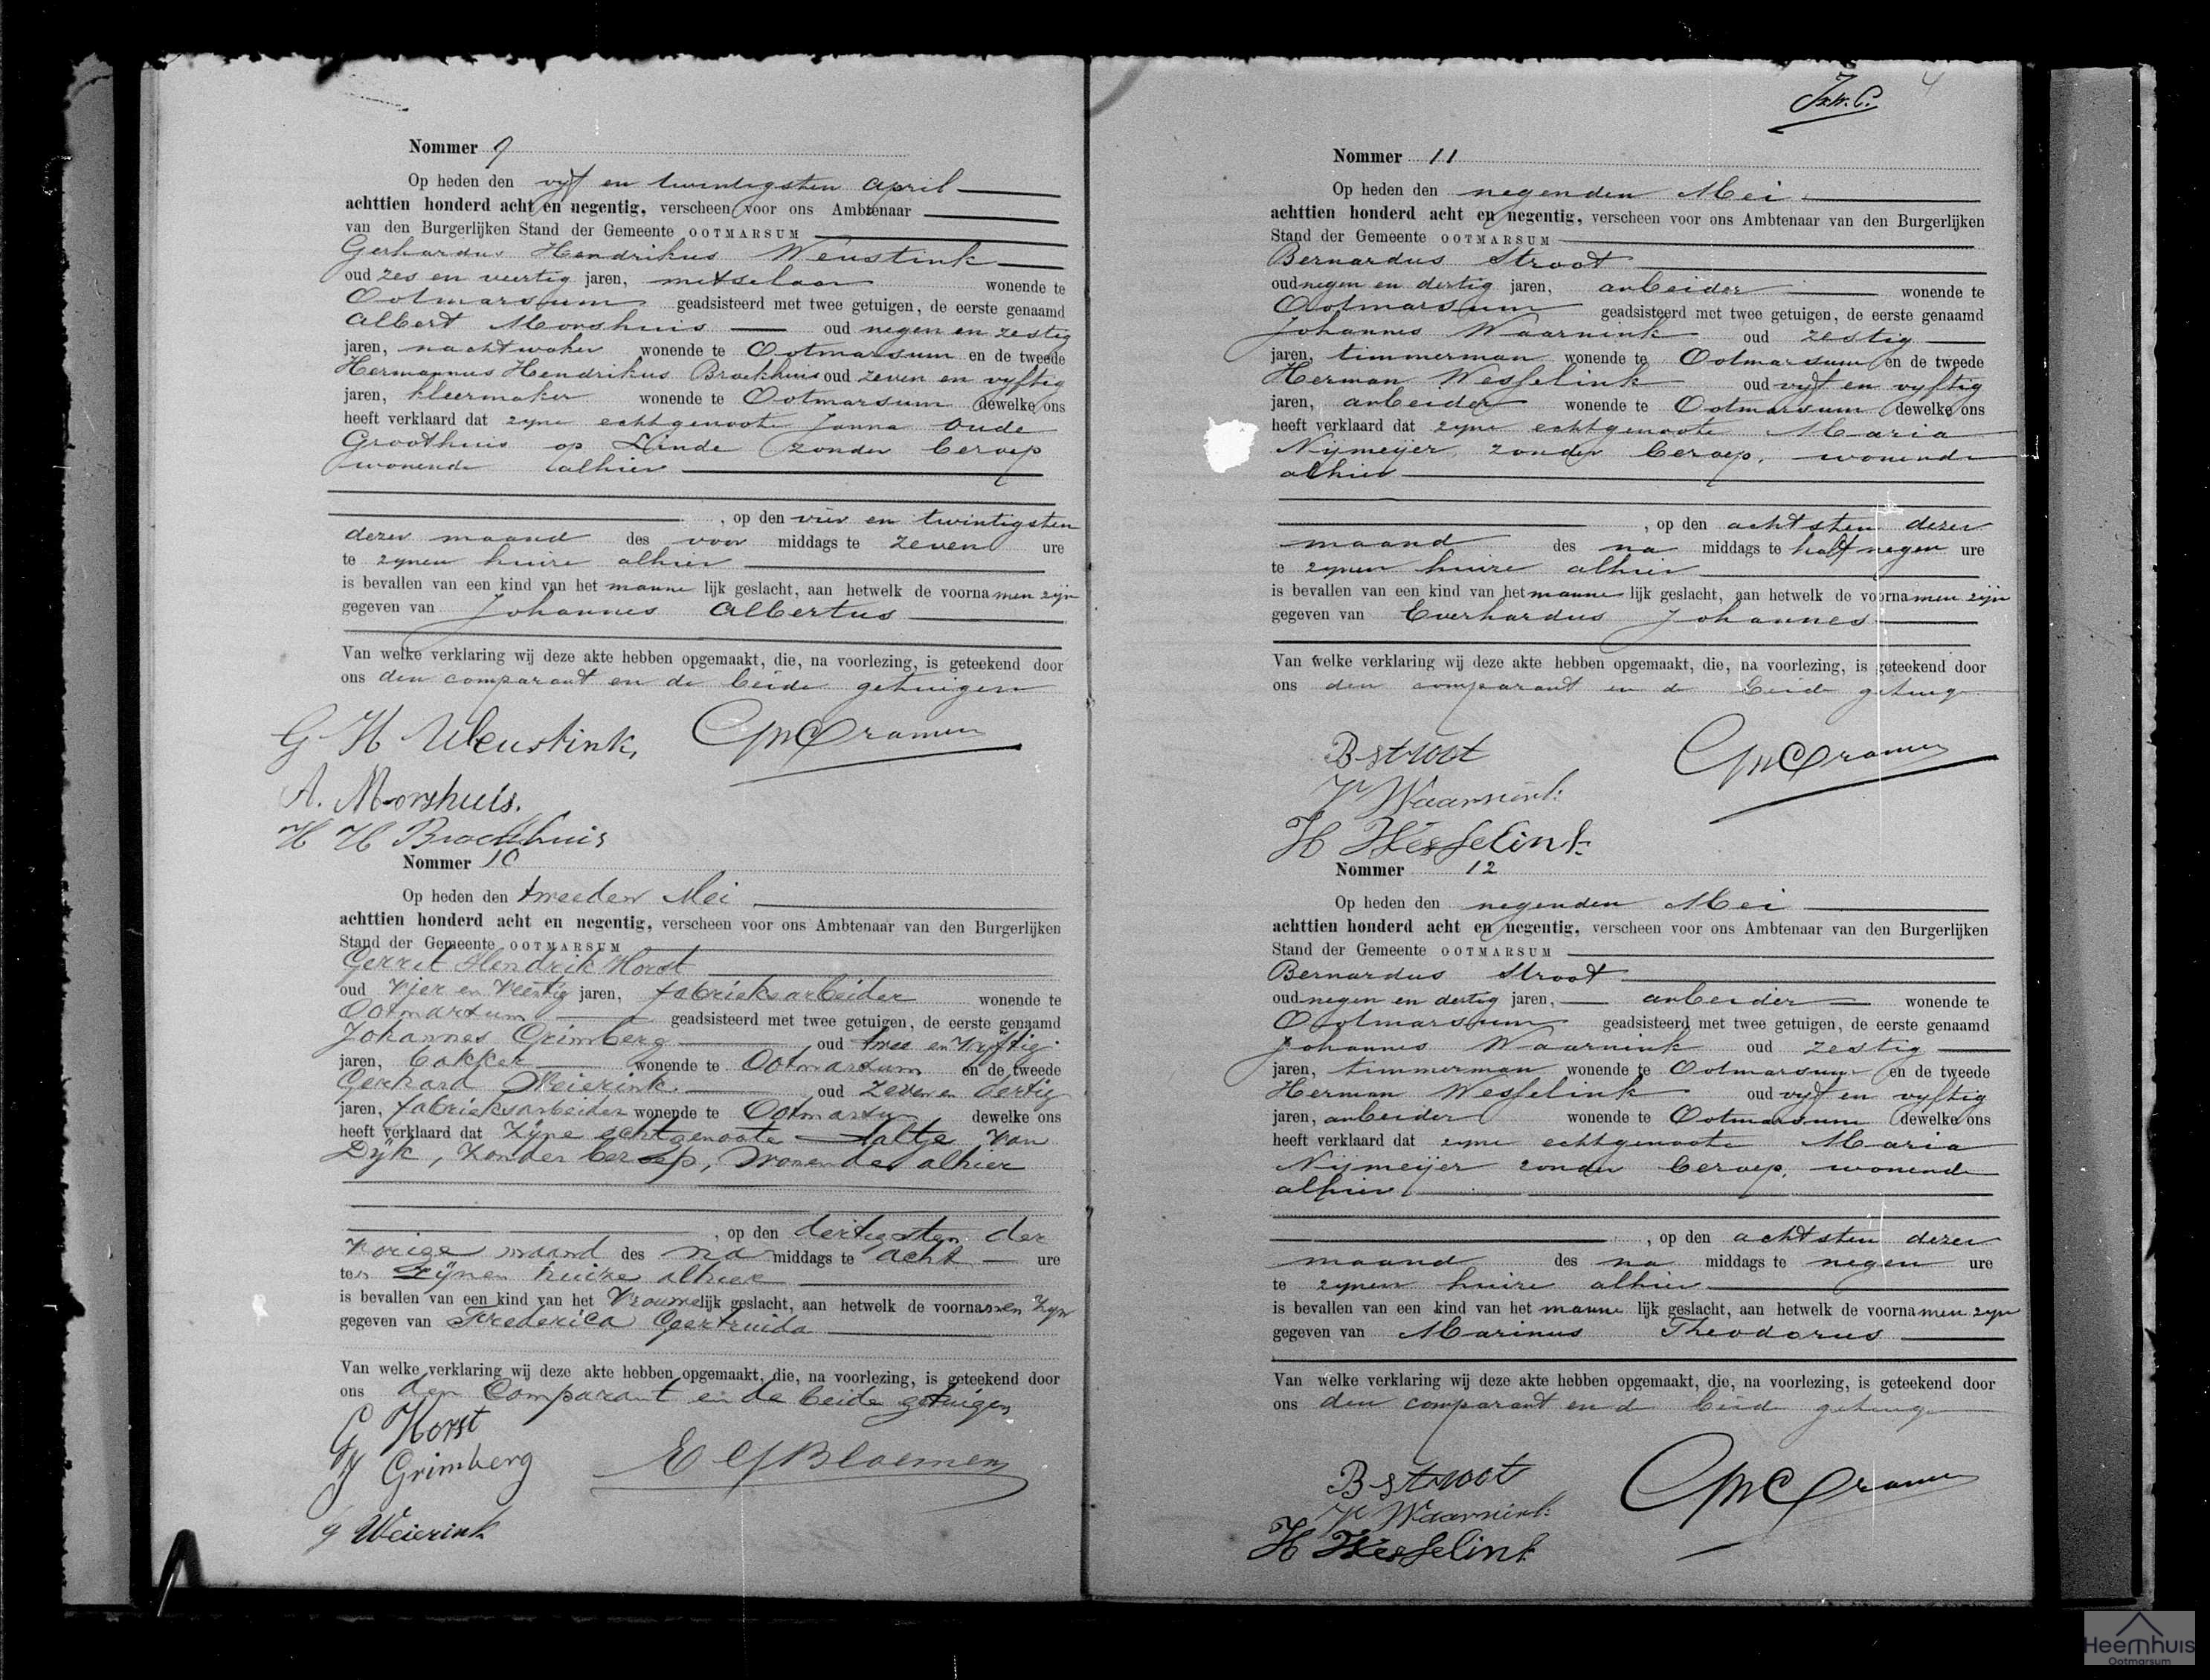 Nommer 9
Op heden den vijf en twintigsten April
achttien honderd acht en negentig, verscheen voor ons Ambtenaar
van den Burgerlijken Stand der Gemeente OOTMARSUM
Gerhardus Hendrikus Weustink
oud zes en veertig jaren, metselaar wonende te
Ootmarsum geadsisteerd met twee getuigen, de eerste genaamd
Albert Morshuis oud negen en zestig
jaren, nachtwaker wonende te Ootmarsum en de tweede
Hermannus Hendrikus Broekhuis oud zeven en vijftig
jaren, kleermaker wonende te Ootmarsum dewelke ons
heeft verklaard dat zijne echtgenoote Janna Oude
Groothuis op Linde zonder beroep
wonende alhier
, op den vier en twintigsten
dezer maand des voor middags te zeven ure
te zijnen huize alhier
is bevallen van een kind van het mannelijk geslacht, aan hetwelk de voornamen zijn
gegeven van Johannes Albertus
Van welke verklaring wij deze akte hebben opgemaakt, die, na voorlezing, is geteekend door
ons den comparant en de beide getuigen
G H Weustink, Cramer
A. Morshuis.
H H Broekhuis
Nommer 10
Op heden den tweeden Mei
achttien honderd acht en negentig, verscheen voor ons Ambtenaar van den Burgerlijken
Stand der Gemeente OOTMARSUM
Gerrit Hendrik Horst
oud vier en veertig jaren, fabrieksarbeider wonende te
Ootmarsum geadsisteerd met twee getuigen, de eerste genaamd
Johannes Grimberg oud twee en vijftig
jaren, bakker wonende te Ootmarsum en de tweede
Gerhard Weierink oud zeven en dertig
jaren, fabrieksarbeider wonende te Ootmarsum dewelke ons
heeft verklaard dat zijne echtgenoote Aaltje van
Dijk, zonder beroep, wonende alhier
, op den dertigsten der
vorige maand des na middags te acht ure
ten zijnen huize alhier
is bevallen van een kind van het vrouwelijk geslacht, aan hetwelk de voornamen zijn
gegeven van Frederica Geertruida
Van welke verklaring wij deze akte hebben opgemaakt, die, na voorlezing, is geteekend door
ons den Comparant en de beide getuigen
G Horst
J Grimberg Bloemen
G Weierink
Nommer 11
Op heden den negenden Mei
achttien honderd acht en negentig, verscheen voor ons Ambtenaar van den Burgerlijken
Stand der Gemeente OOTMARSUM
Bernardus Stroot
oud negen en dertig jaren, arbeider wonende te
Ootmarsum geadsisteerd met twee getuigen, de eerste genaamd
Johannes Waarnink oud zestig
jaren, timmerman wonende te Ootmarsum en de tweede
Herman Wesselink oud vijf en vijftig
jaren, arbeider wonende te Ootmarsum dewelke ons
heeft verklaard dat zijne echtgenoote Maria
Nijmeijer, zonder beroep, wonende
alhier
, op den achtsten dezer
maand des na middags te half negen ure
te zijnen huize alhier
is bevallen van een kind van het mannelijk geslacht, aan hetwelk de voornamen zijn
gegeven van Everhardus Johannes
Van welke verklaring wij deze akte hebben opgemaakt, die, na voorlezing, is geteekend door
ons den comparant en de beide getuige
B Stroot Cramer
J Waarnink
H Wesselink
Nommer 12
Op heden den negenden Mei
achttien honderd acht en negentig, verscheen voor ons Ambtenaar van den Burgerlijken
Stand der Gemeente OOTMARSUM
Bernardus Stroot
oud negen en dertig jaren, arbeider wonende te
Ootmarsum geadsisteerd met twee getuigen, de eerste genaamd
Johannes Waarnink oud zestig
jaren, timmerman wonende te Ootmarsum en de tweede
Herman Wesselink oud vijf en vijftig
jaren, arbeider wonende te Ootmarsum dewelke ons
heeft verklaard dat zijne echtgenoote Maria
Nijmeijer zonder beroep, wonende
alhier
, op den achtsten dezer
maand des na middags te negen ure
te zijnen huize alhier
is bevallen van een kind van het mannelijk geslacht, aan hetwelk de voornamen zijn
gegeven van Marinus Theodorus
Van welke verklaring wij deze akte hebben opgemaakt, die, na voorlezing, is geteekend door
ons den comparant en de beide getuige
B Stroot Cramer
J Waarnink
H Wesselink
Heemhuis
Ootmarsum